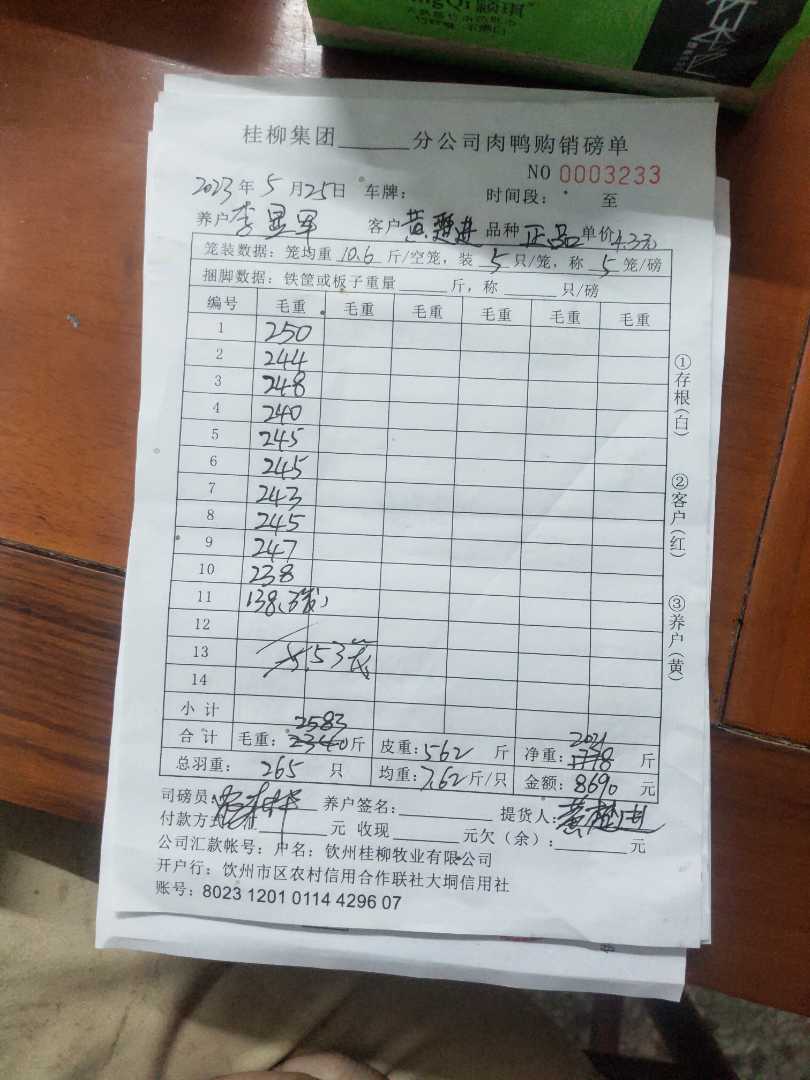 颖琪
桂柳集团______分公司肉鸭购销磅单
NO 0003233
2023年5月25日 车牌: 时间段: 至
养户李显军 客户黄 进 品种正品 单价4.3元
笼装数据:笼均重10.6斤/空笼,装5只/笼,称5笼/磅
捆脚数据:铁筐或板子重量______斤,称______只/磅
编号 毛重 毛重 毛重 毛重 毛重 毛重
1 250
2 244
3 248
4 240
5 245
6 245
7 243
8 245
9 247
10 238
11 138(3龙)
12
13 53龙
14
小计
合计 毛重:2583斤 皮重:562斤 净重:2021斤
总羽重:265只 均重:7.62斤/只 金额:8690元
司磅员: 养户签名:______ 提货人:黄 进
付款方式: ______元 收现______元欠(余):______元
公司汇款帐号:户名:钦州桂柳牧业有限公司
开户行:钦州市区农村信用合作联社大垌信用社
账号:8023 1201 0114 4296 07
①存根(白) ②客户(红) ③养户(黄)